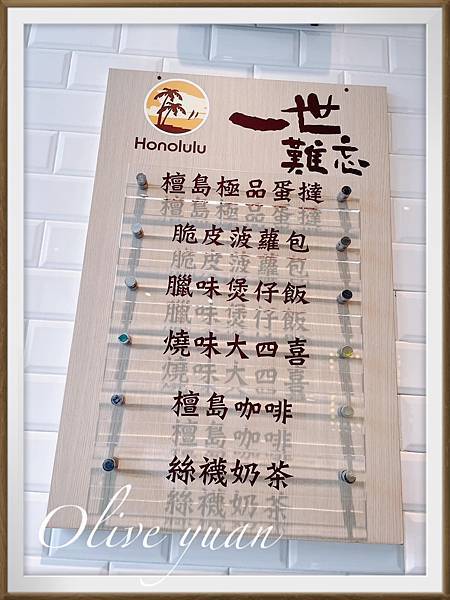 Honolulu
一世難忘
檀島極品蛋撻
脆皮菠蘿包
臘味煲仔飯
燒味大四喜
檀島咖啡
絲襪奶茶
Olive yuan